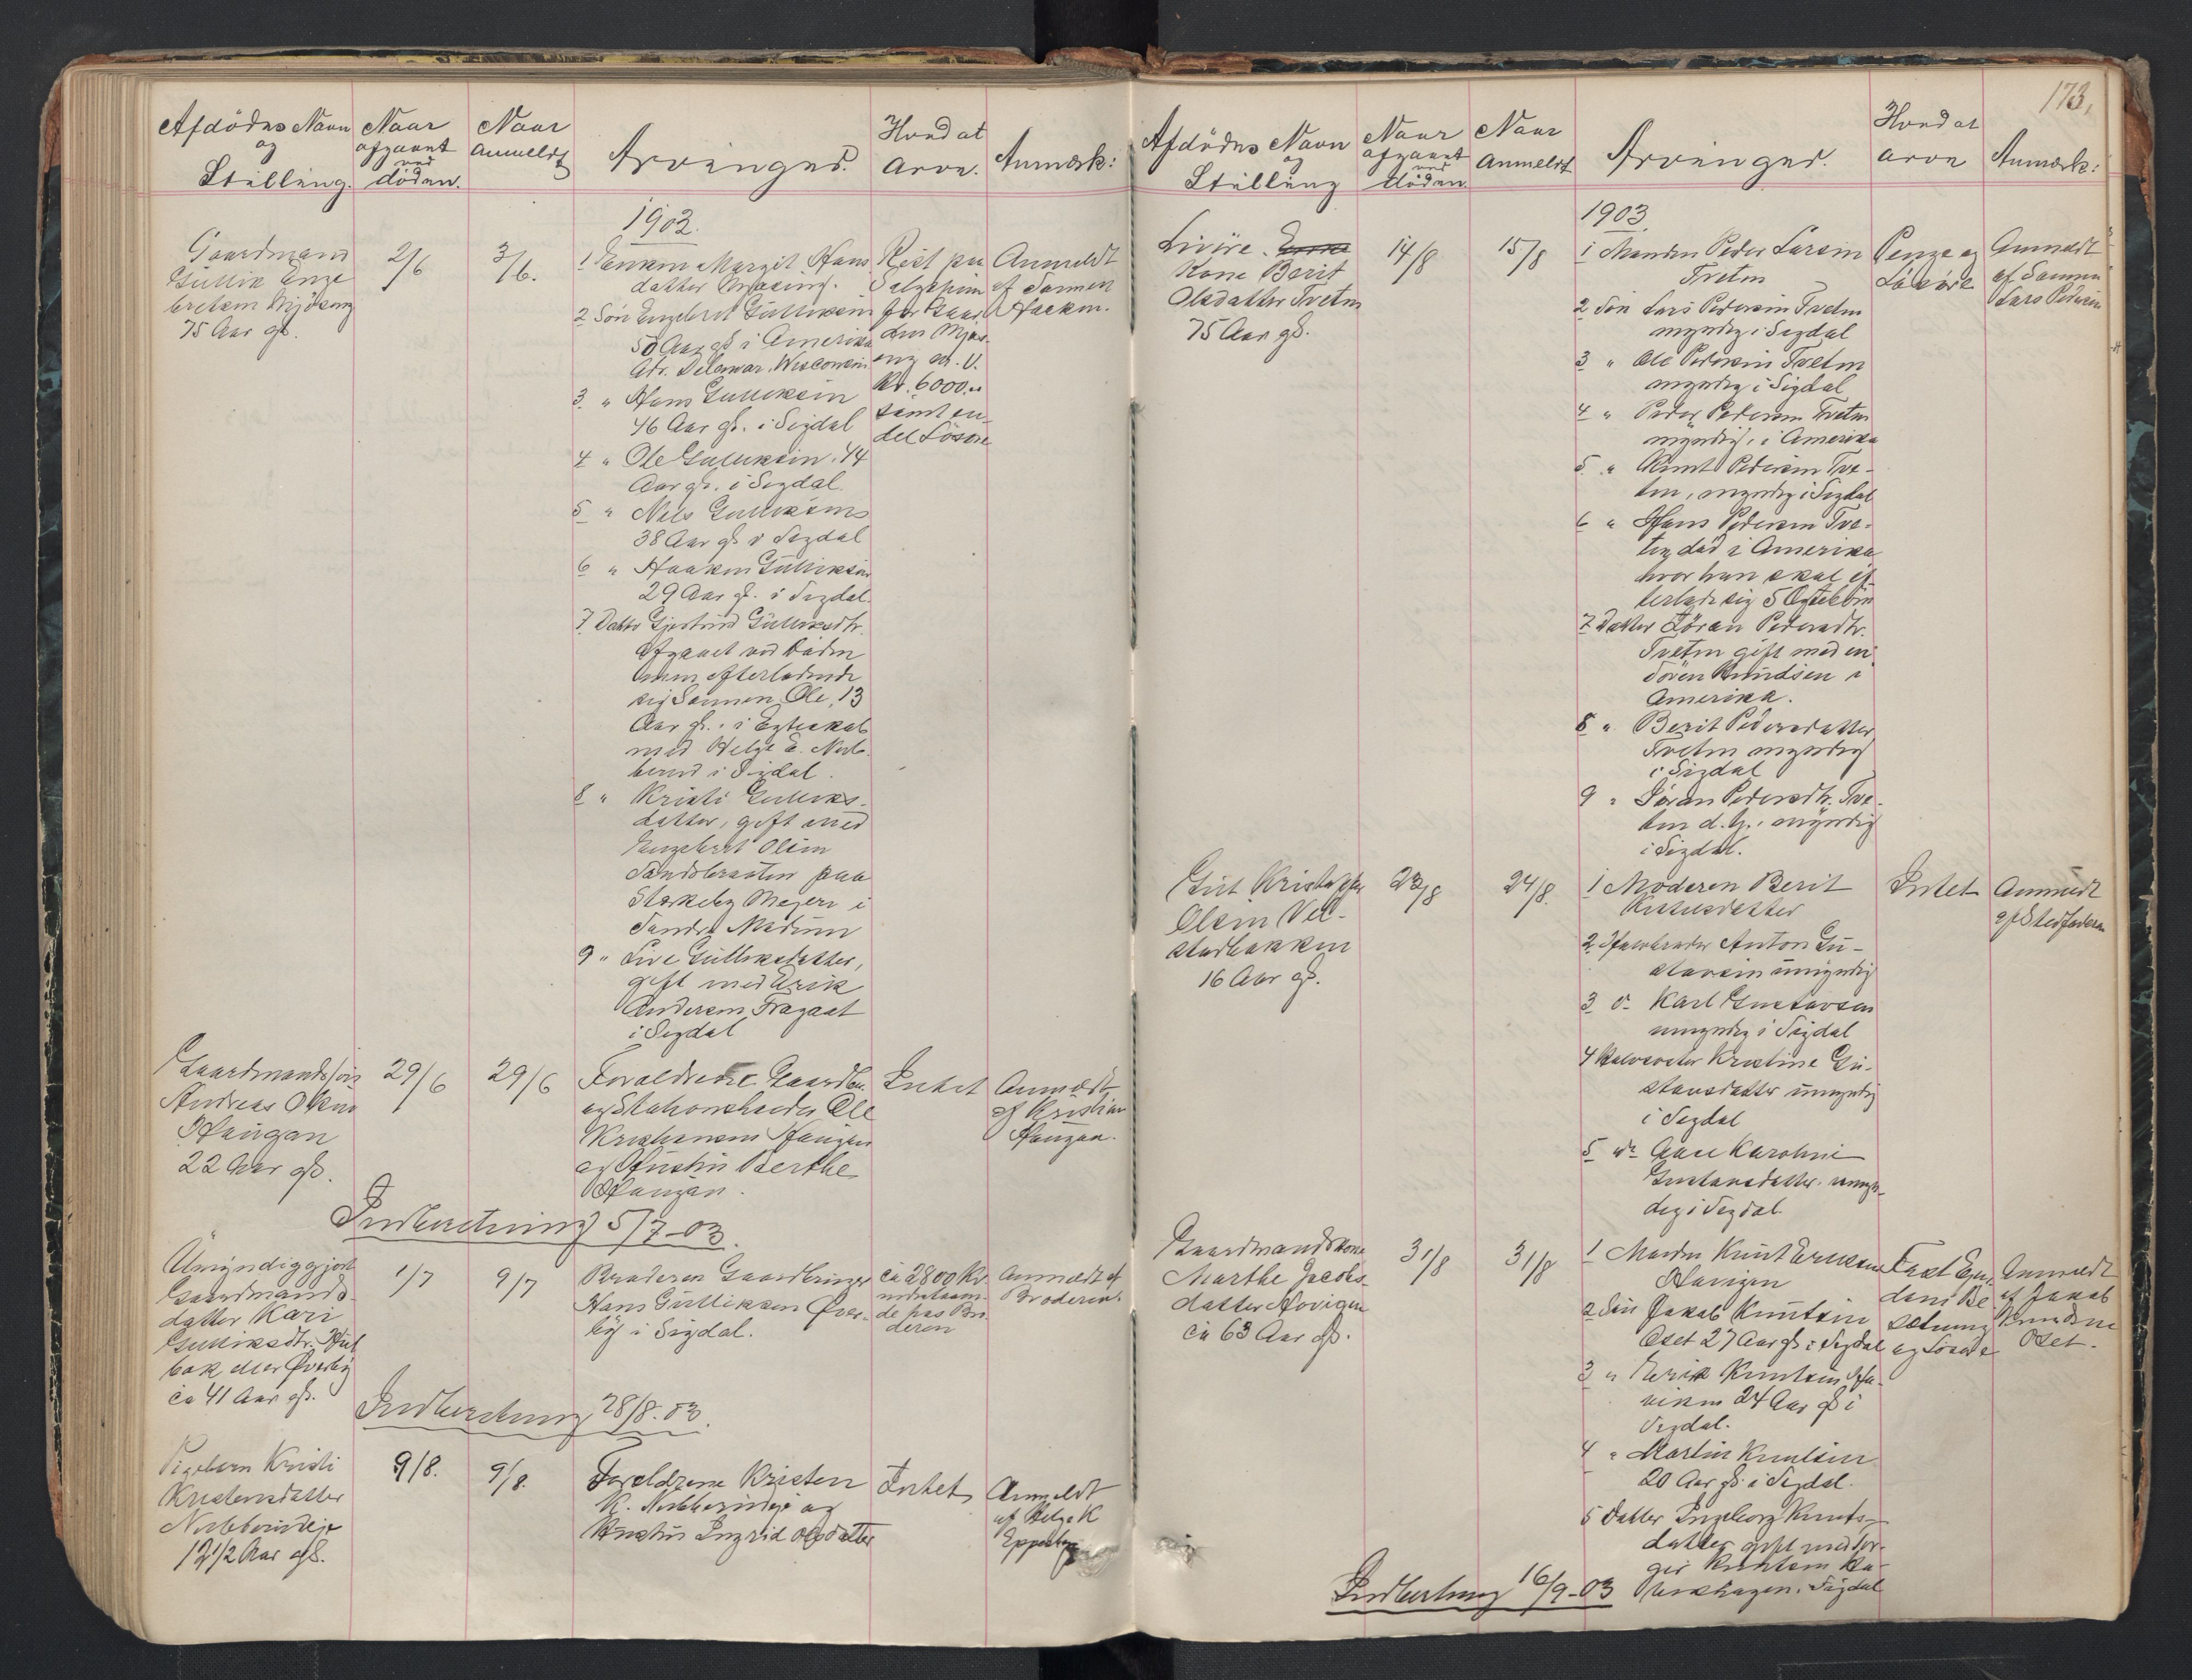 Afdödes Navn
og
Stilling.
Naar
afgaaet
ved
döden.
Naar
Anmeldt
Arvinger.
Hvad at
Arve.
Anmærk:
1903.
Gaardmand
Gullik Enge
bretsen Mjöseng
75 Aar gl.
2/6
3/6.
1 Enken Margit Hans
datter
2 Sön Engebret Gulliksen
50 Aar gl i Amerika
Adr. Delawar. Wisconsin
3 " Hans Gulliksen
46 Aar gl. i Sigdal
4 " Ole Gulliksen. 44
Aar gl. i Sigdal.
5 " Nels Gulliksens
38 Aar gl i Sigdal
6 " Haaken Gulliksen
29 Aar gl. i Sigdal.
7 Datter Gjertrud Gulliksdtr.
Afgaaet ved Döden
men efterladende
sig Sönnen Ole, 13
Aar gl. i Egteskab
med Helge E.
i Sigdal.
8 " Kristi Guliks-
datter, gift med
Engebret Olsen
Sandsbraaten paa
Meyeri i
Söndre Modum
9 " Live Gulliksdatter,
gift med Erik
Andersen Fragaat
i Sigdal
Rest paa
for Gaar
den Mjös-
eng
Kr. 6000.
samt en
del Lösöre
Anmeldt
af Sönnen
Haaken.
Gaardmandssön
Andreas Olsen
Haugan
22 Aar gl.
29/6
29/6
Forældrene Gaardbr.
og Stationsholder Ole
Kristiansen Haugan
og Hustru Berthe
Haugan.
Intet
Anmeldt
af Kristian
Haugan.
Indberetning 5/7-03.
Umyndiggjort
Gaardmands-
datter Kari
Gulliksdtr.
eller Överby
ca 41 Aar gl.
1/7
9/7
Broderen Gaardbruger
Hans Gulliksen Över-
by i Sigdal.
ca 2800 Kr
indestaaen-
de hos Bro
deren
Anmeldt af
Broderen.
Indberetning 28/8.03.
Pigebarn Kristi
Kristensdatter
12 1/2 Aar gl.
9/8.
9/8.
Forældrene Kristen
K. og
Hustru Ingrid Olsdatter
Intet
Anmeldt
af Helge K
173.
Afdödes Navn
og
Stilling
Naar
afgaaet
ved
döden.
Naar
Anmeldt
Arvinger.
Hvad at
arve
Anmærk:
1903
Kone Berit
Olsdatter Tveten
75 Aar gl.
14/8
15/8
1 Manden Peder Larsen
Tveten
2 Sön Lars Pedersen Tveten
myndig i Sigdal
3 " Ole Pedersen Tveten
myndig i Sigdal
4 " Peder Pedersen Tveten
myndig, i Amerika
5 " Knut Pedersen Tve-
ten, myndig i Sigdal
6 " Hans Pedersen Tve-
ten död i Amerika
hvor han skal ef-
terlade sig 5 Egtebörn
7 Datter Jöran Pedersdtr.
Tveten gift med en
Sören Knudsen i
Amerika.
8 " Berit Pedersdatter
Tveten myndig
i Sigdal
9 " Jöran Pedersdtr. Tve-
ten d. y. myndig
i Sigdal.
Penge og
Lösöre
Anmeldt
af Sönnen
Lars Pedersen
Gut Kristoffer
Olsen Vel-
stadbakken
16 Aar gl.
23/8
24/8.
1 Moderen Berit
2 Halvbroder Anton Gu-
stavsen umyndig
3 do Karl Gustavsen
umyndig i Sigdal
4 Halvsöster Kristine Gu-
stavsdatter umyndig
i Sigdal
5 do Karoline
Gustavsdatter. umyn-
dig i Sigdal.
Intet
Anmeldt
af Stedfaderen
Gaardmandskone
Marthe Jacobs-
datter Hovigen
ca 63 Aar gl.
31/8
31/8
1 Manden Knut Eriksen
2 Sön Jakob Knutsen
Oset 27 Aar gl i Sigdal
3 " Erik Knutsen
24 Aar gl i
Sigdal.
4 " Martin Knutsen
20 Aar gl. i Sigdal.
5 Datter Ingeborg Knuts-
datter gift med Tor-
ger Knutsen
Sigdal
Fast Ejen-
dom, Be-
sætning
og Lösöre
Anmeldt
af Jakob
Knudsen
Oset.
Indberetning 16/9-03